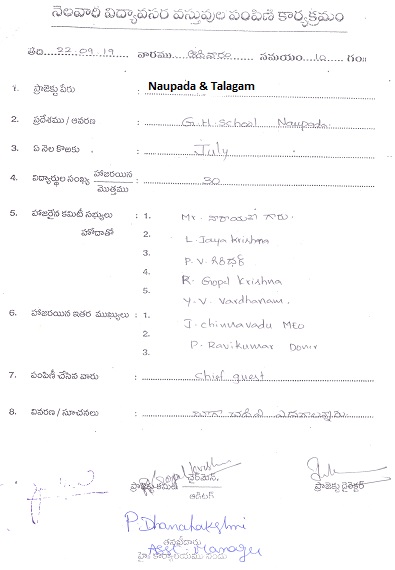 నెలవారీ విద్యావసర వస్తువుల పంపిణీ కార్యక్రమం
తేది వారము ఆదివారం సమయం 10 గం॥
1. ప్రాజెక్టు పేరు : Naupada & Talagam
2. ప్రదేశము / ఆవరణ : G.H. School Naupada
3. ఏ నెల కొఱకు : July
4. విద్యార్థుల సంఖ్య హాజరయిన / మొత్తము : 30
5. హాజరైన కమిటీ సభ్యులు : 1. Mr. నారాయణ గారు.
హోదాతో 2. L. Jaya Krishna
3. P.V. గిరిధర్
4. R. Gopal Krishna
5. Y.V. Vardhanam.
6. హాజరయిన ఇతర ముఖ్యులు : 1. J. chinnavadu MEO
2. P. Ravikumar Donor
3.
7. పంపిణీ చేసిన వారు : Chief guest
8. వివరణ / సూచనలు :
ప్రాజెక్టు కమిటీ ఛైర్మెన్, ప్రాజెక్టు డైరెక్టర్
ఆడిటర్
P Dhanalakshmi
Asst. Manager